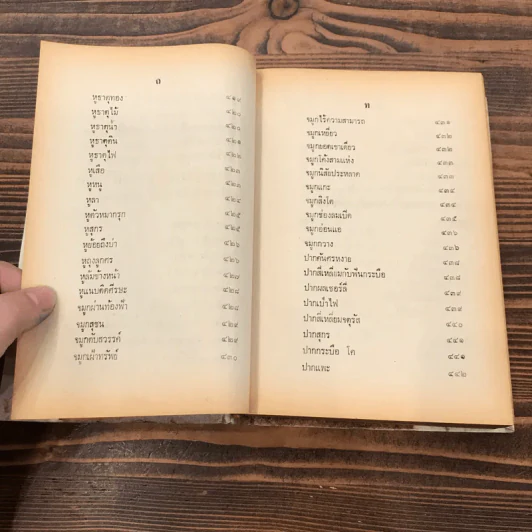 ถ
หูธาตุทอง ๔๑๙
หูธาตุไม้ ๔๒๐
หูธาตุน้ำ ๔๒๐
หูธาตุดิน ๔๒๑
หูธาตุไฟ ๔๒๒
หูเสือ ๔๒๓
หูหนู ๔๒๓
หูลา ๔๒๔
หูคัวหมากรุก ๔๒๕
หูสุกร ๔๒๕
หูย้อยถึงบ่า ๔๒๖
หูถุงลูกศร ๔๒๖
หูล้มข้างหน้า ๔๒๗
หูแนบติดศีรษะ ๔๒๘
จมูกผ่านท้องฟ้า ๔๒๘
จมูกสุขน ๔๒๙
จมูกตับสวรรค์ ๔๒๙
จมูกเฝ้าทรัพย์ ๔๓๐
ท
จมูกไร้ความสามารถ ๔๓๑
จมูกเหยี่ยว ๔๓๒
จมูกยอดเขาเดี่ยว ๔๓๒
จมูกโค้งสามแห่ง ๔๓๓
จมูกนิสัยประหลาด ๔๓๓
จมูกแกะ ๔๓๔
จมูกสิงโต ๔๓๔
จมูกช่องลมเปิด ๔๓๕
จมูกอ่อนแอ ๔๓๖
จมูกกวาง ๔๓๖
ปากคันศรหงาย ๔๓๘
ปากสี่เหลี่ยมกับฟันกระบือ ๔๓๘
ปากผลเชอร์รี่ ๔๓๙
ปากเป่าไฟ ๔๓๙
ปากสี่เหลี่ยมจตุรัส ๔๔๐
ปากสุกร ๔๔๑
ปากกระบือ โค ๔๔๑
ปากแพะ ๔๔๒